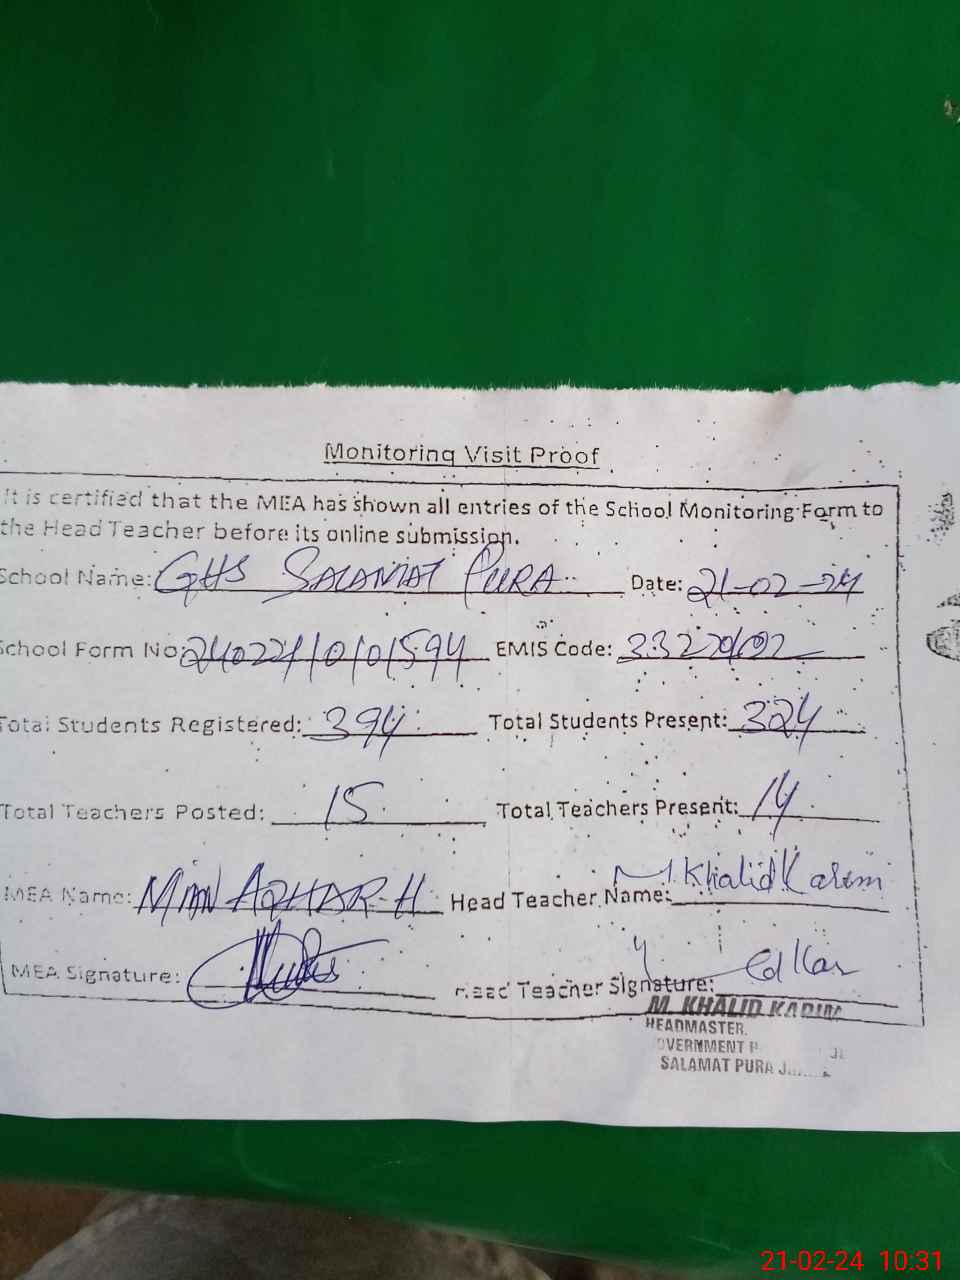 Monitoring Visit Proof
It is certified that the MEA has shown all entries of the School Monitoring Form to
the Head Teacher before its online submission.
School Name: GHS SALAMAT PURA Date: 21-02-24
School Form No: EMIS Code:
Total Students Registered: 394 Total Students Present: 324
Total Teachers Posted: 15 Total Teachers Present: 14
MEA Name: MIAN AZHAR-H Head Teacher Name: M. Khalid Karim
MEA Signature: Head Teacher Signature:
M. KHALID KARIM
HEADMASTER.
SALAMAT PURA
21-02-24 10:31